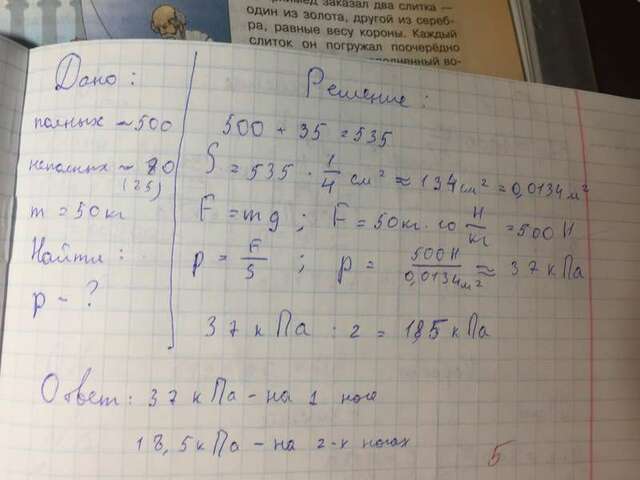 химед заказал два слитка —
один из золота, другой из сереб-
ра, равные весу короны. Каждый
слиток он погружал поочерёдно
полненный во-
Дано:
полных - 500
неполных - 70
(35)
m = 50 кг
Найти:
p - ?
Решение:
500 + 35 = 535
S = 535 · 1/4 см² ≈ 134 см² = 0,0134 м²
F = mg ; F = 50 кг · 10 Н/кг = 500 Н
p = F/S ; p = 500 Н/0,0134 м² ≈ 37 кПа
37 кПа : 2 = 18,5 кПа
Ответ: 37 кПа - на 1 ноге
18,5 кПа - на 2-х ногах
5